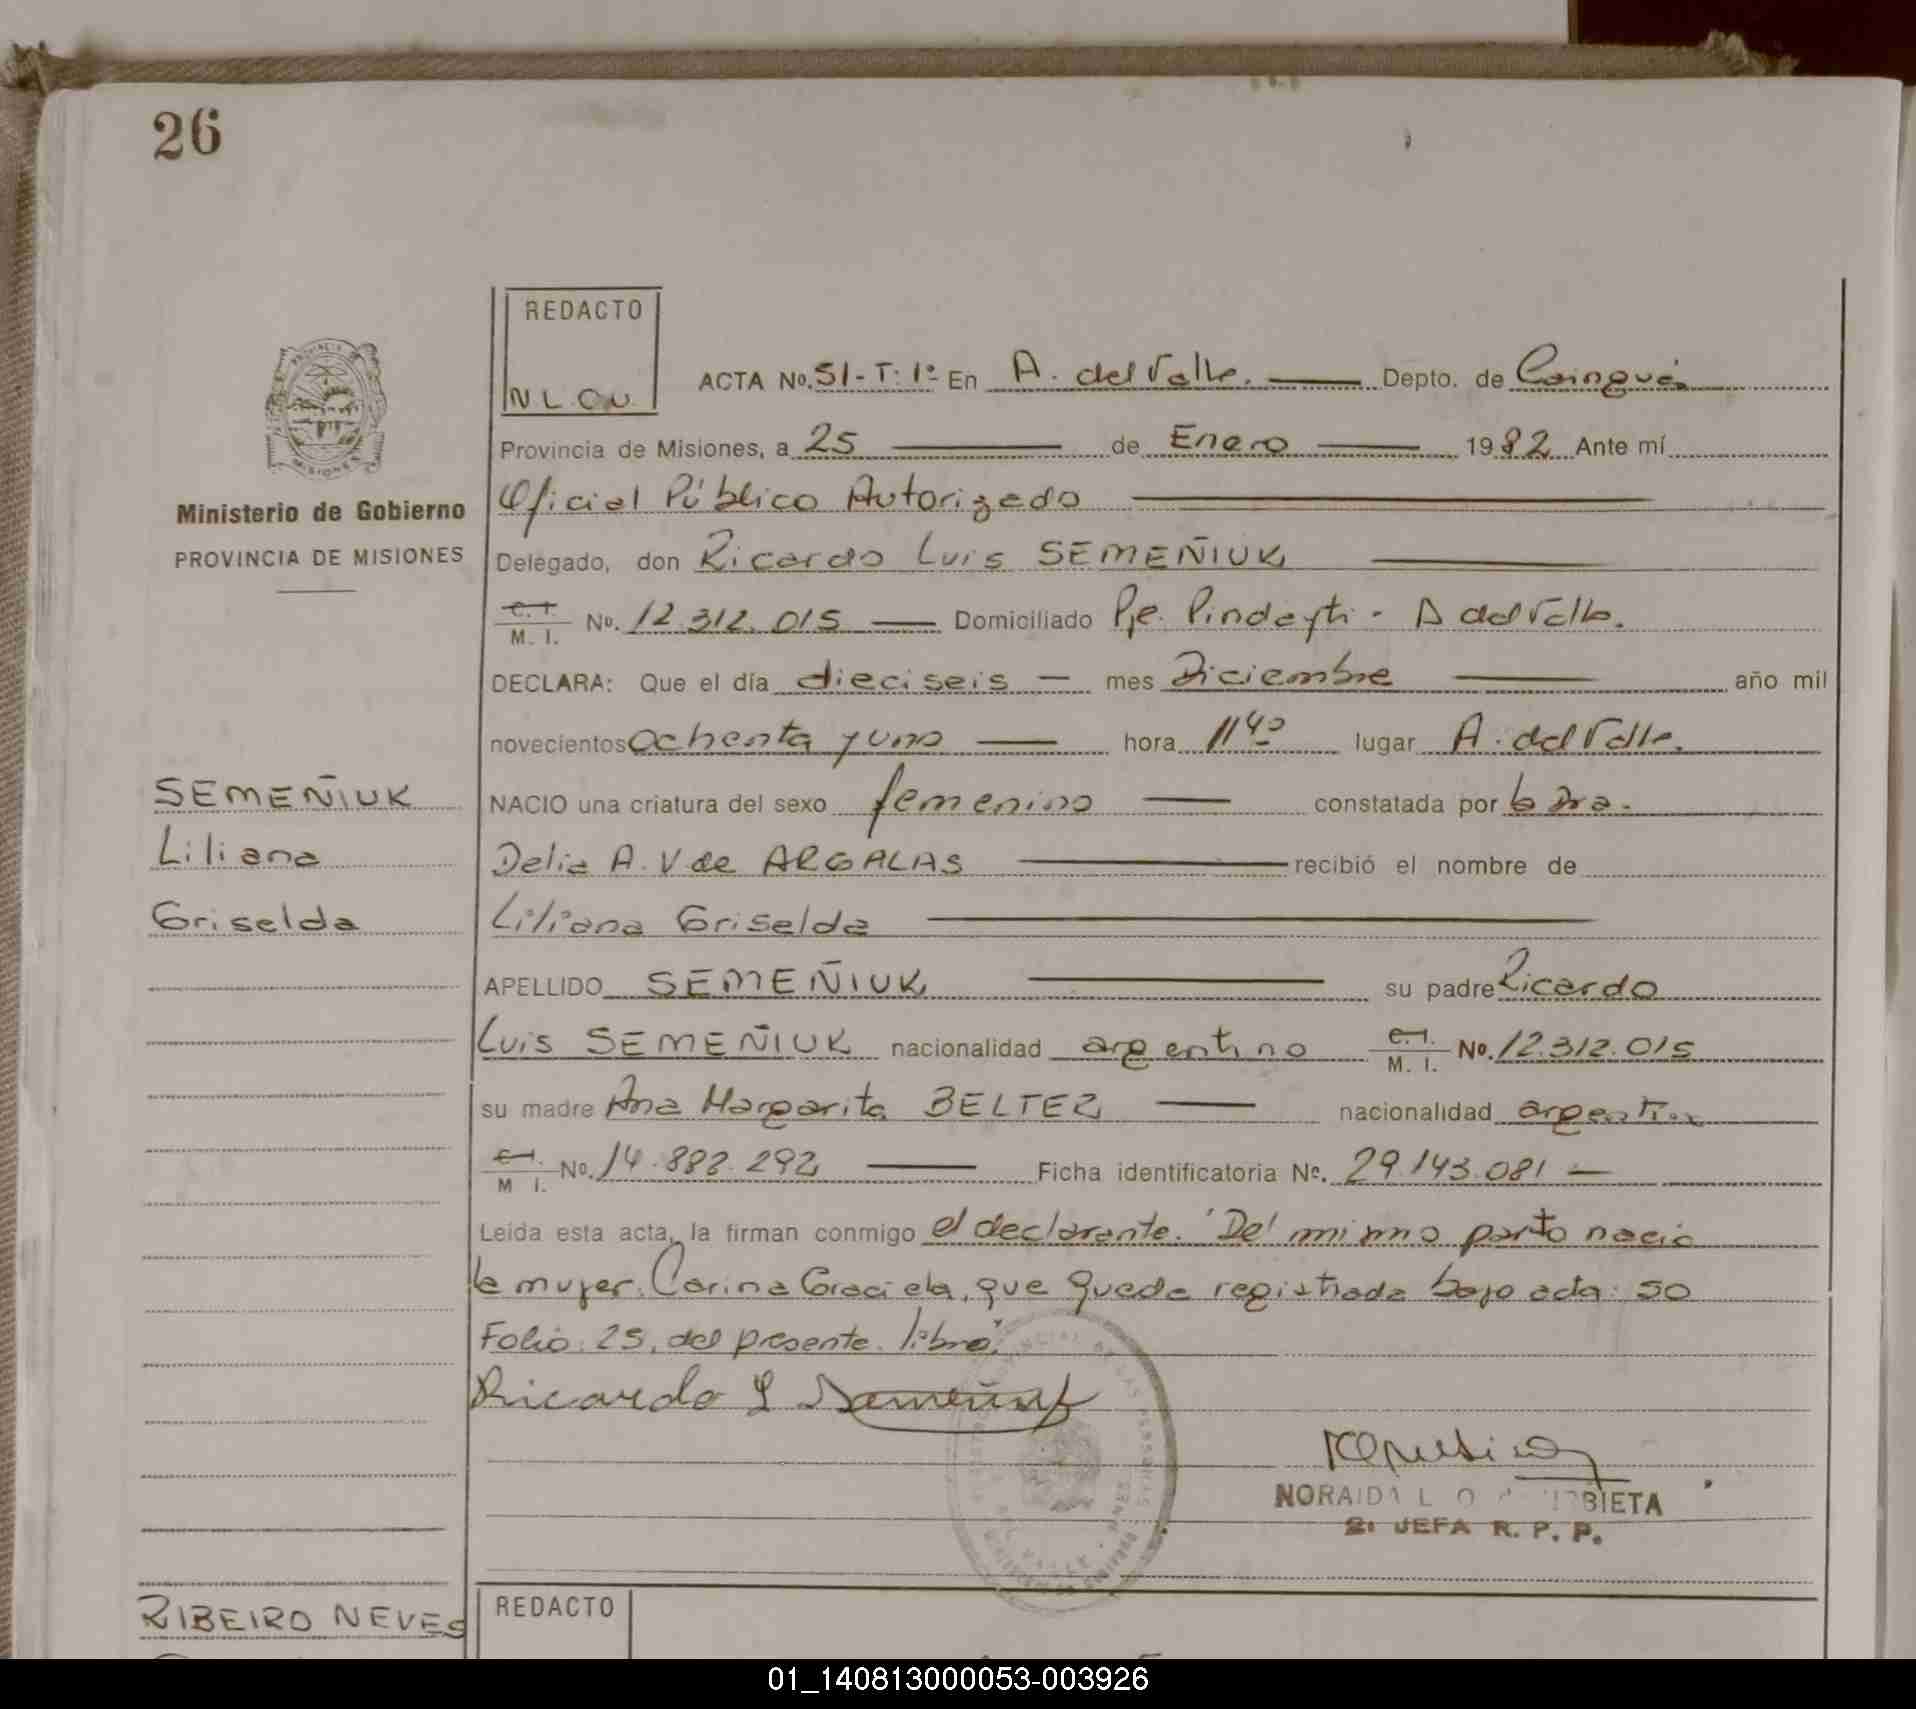 26
REDACTO
N L. O.V.
ACTA No. 51-T: 1º En A. del Valle. Depto. de Cainguás
Provincia de Misiones, a 25 de Enero 1982 Ante mí
Oficial Público Autorizado
Ministerio de Gobierno
PROVINCIA DE MISIONES
Delegado, don Ricardo Luis SEMEÑIUK
C. I. M. I. No. 12.312.015 Domiciliado Pje. Pindayti - A del Valle.
DECLARA: Que el día dieciseis mes Diciembre año mil
novecientos ochenta y uno hora 11 40 lugar A. del Valle.
SEMEÑIUK
Liliana
Griselda
NACIO una criatura del sexo femenino constatada por la Dra.
Delia A. V. de ARGALAS recibió el nombre de
Liliana Griselda
APELLIDO SEMEÑIUK su padre Ricardo
Luis SEMEÑIUK nacionalidad argentino C. I. M. I. No. 12.312.015
su madre Ana Margarita BELTER nacionalidad argentina
C. I. M I. No. 14.882.292 Ficha identificatoria Nº. 29.143.081
Leida esta acta, la firman conmigo el declarante. "Del mismo parto nació
la mujer: Carina Graciela, que queda registrada bajo acta: 50
Folio: 25, del presente libro"
Ricardo L Semeñiuk
NORAIDA L O BIETA
2ª JEFA R. P. P.
RIBEIRO NEVES
REDACTO
01_140813000053-003926